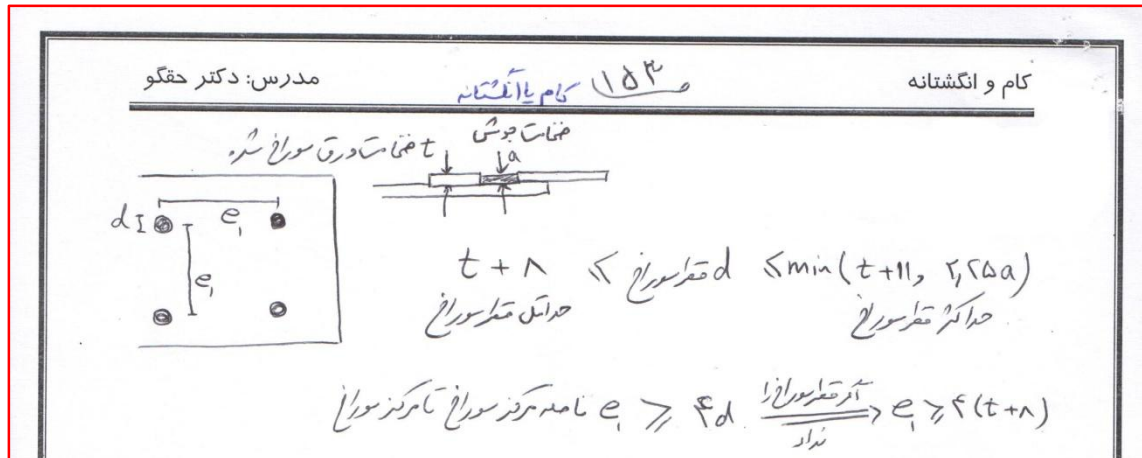 کام و انگشتانه
ص ۱۵۳ کام یا انگشتانه
مدرس: دکتر حقگو
ضخامت جوش
a
t ضخامت ورق سوراخ شده
d
e₁
e₁
t + ۸ ≤ قطر سوراخ d ≤ min(t + ۱۱, ۲,۲۵a)
حداقل قطر سوراخ
حداکثر قطر سوراخ
فاصله مرکز سوراخ تا مرکز سوراخ e₁ ≥ ۴d اگر قطر سوراخ را نداد e₁ ≥ ۴(t + ۸)